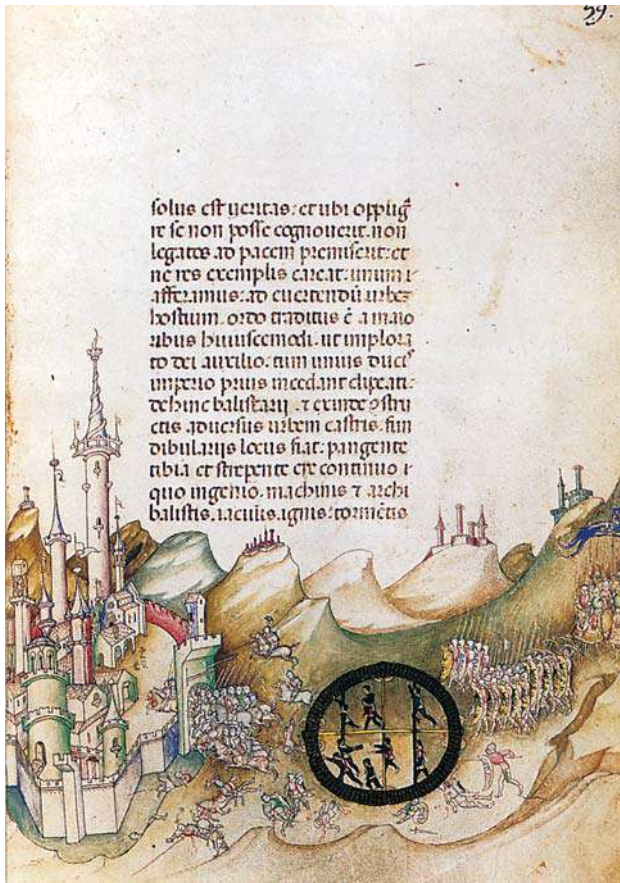 59.
solus est ueritas: et ubi oppugā
re se non posse cognouerit. non
legatos ad pacem premiserit: et
ne res exemplis careat: unum i
afferamus: ad euertendū urbez
hostium. ordo traditus ē a maio
ribus huiuscemodi. ut implora
to dei auxilio. cum unius duci
imperio prius incedant clipeati:
dehinc balistarij. ⁊ exinde
ctis aduersus urbem castris. fun
dibularijs locus fiat: pangente
tibia et strepente ere continuo i
quo ingenio. machinis ⁊ archi
balistis. iaculis. ignis: tormētis